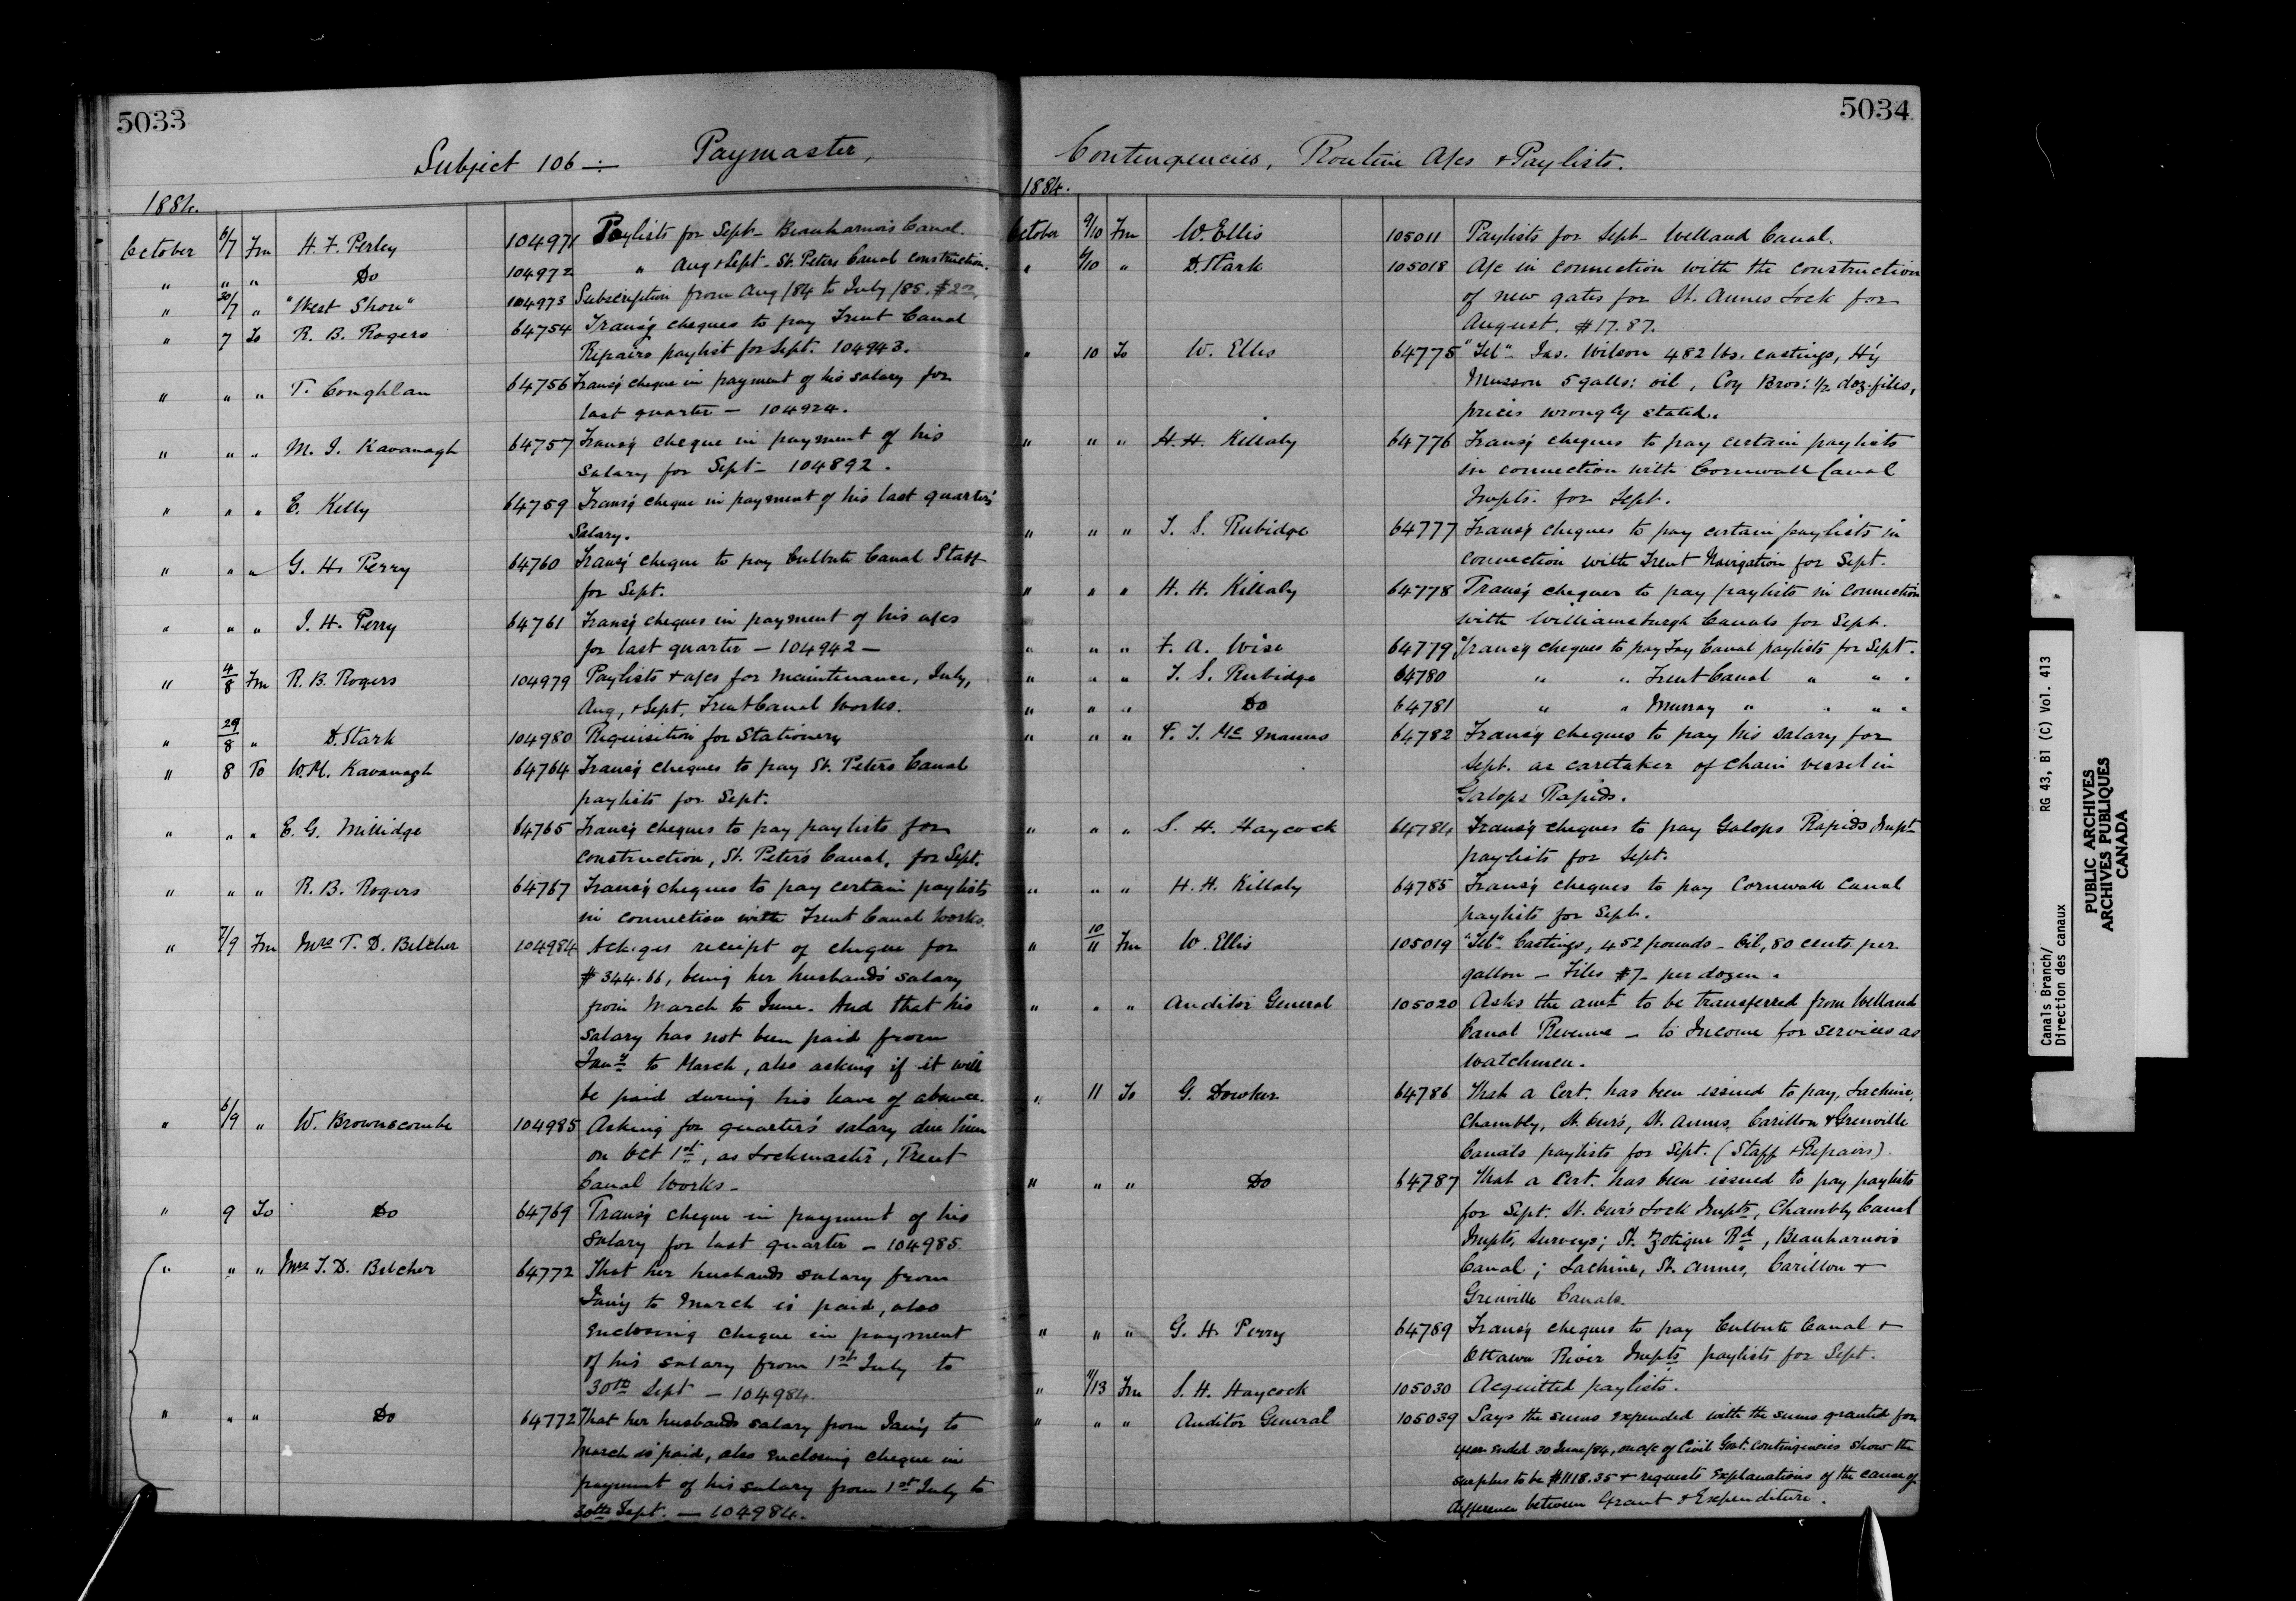 5033
Subject 106 —: Paymaster,
1884.
October 6/7 Fm H. F. Perley 104971 Paylists for Sept - Beauharnois Canal.
" " " Do 104972 " Aug & Sept - St. Peters Canal construction.
" 30/7 " "West Shore" 104973 Subscription from Aug /84 to July /85. $2.00
" 7 To R. B. Rogers 64754 Trans'g cheques to pay Trent Canal
Repairs paylist for Sept. 104943.
" " " T. Coughlan 64756 Trans'g cheque in payment of his salary for
last quarter — 104924.
" " " M. J. Kavanagh 64757 Trans'g cheque in payment of his
salary for Sept - 104892.
" " " E. Kelly 64759 Trans'g cheque in payment of his last quarter's
Salary.
" " " G. H. Perry 64760 Trans'g cheque to pay Culbute Canal Staff
for Sept.
" " " J. H. Perry 64761 Trans'g cheques in payment of his a/cs
for last quarter — 104942 —
" 4/8 Fm R. B. Rogers 104979 Paylists & a/cs for maintenance, July,
Aug, & Sept, Trent Canal Works.
" 29/8 " D. Stark 104980 Requisition for Stationery
" 8 To W. M. Kavanagh 64764 Trans'g cheques to pay St. Peters Canal
paylists for Sept.
" " " E. G. Millidge 64765 Trans'g cheques to pay paylists for
construction, St. Peter's Canal, for Sept.
" " " R. B. Rogers 64767 Trans'g cheques to pay certain paylists
in connection with Trent Canal Works.
" 7/9 Fm Mrs T. D. Belcher 104984 Ack'ges receipt of cheque for
$344.66, being her husband's salary
from March to June. And that his
salary has not been paid from
Jany to March, also asking if it will
be paid during his leave of absence.
" 6/9 " W. Brownscombe 104985 Asking for quarter's salary due him
on Oct 1st, as Lockmaster, Trent
Canal Works -
" 9 To Do 64769 Trans'g cheque in payment of his
salary for last quarter - 104985.
" " " Mrs T. D. Belcher 64772 That her husbands salary from
Jan'y to March is paid, also
enclosing cheque in payment
of his salary from 1st July to
30th Sept - 104984.
" " " Do 64772 That her husbands salary from Jan'y to
March is paid, also enclosing cheque in
payment of his salary from 1st July to
30th Sept. — 104984.
5034
Contingencies, Routine A/cs & Paylists.
1884.
October 9/10 Fm W. Ellis 105011 Paylists for Sept - Welland Canal.
" 6/10 " D. Stark 105018 A/c in connection with the construction
of new gates for St. Annes Lock for
August. $17.87.
" 10 To W. Ellis 64775 "Tel" Jas. Wilson 482 lbs. castings, H'y
Musson 5 galls: oil, Coy Bros: 1/2 doz. files,
prices wrongly stated.
" " " H. H. Killaly 64776 Trans'g cheques to pay certain paylists
in connection with Cornwall Canal
Impts. for Sept.
" " " T. S. Rubidge 64777 Trans'g cheques to pay certain paylists in
connection with Trent Navigation for Sept.
" " " H. H. Killaly 64778 Trans'g cheques to pay paylists in connection
with Williamsburgh Canals for Sept.
" " " F. A. Wise 64779 Trans'g cheques to pay Tay Canal paylists for Sept.
" " " T. S. Rubidge 64780 " " Trent Canal " " .
" " " Do 64781 " " Murray " " " .
" " " F. J. McManus 64782 Trans'g cheques to pay his salary for
Sept. as caretaker of chain vessel in
Galops Rapids.
" " " S. H. Haycock 64784 Trans'g cheques to pay Galops Rapids Impt
paylists for Sept.
" " " H. H. Killaly 64785 Trans'g cheques to pay Cornwall Canal
paylists for Sept.
" 10/11 Fm W. Ellis 105019 "Tel" Castings, 452 pounds - Oil, 80 cents per
gallon — Files $7 - per dozen.
" " " Auditor General 105020 Asks the amt to be transferred from Welland
Canal Revenue — to Income for services as
watchmen.
" 11 To G. Dowker 64786 That a Cert. has been issued to pay, Lachine,
Chambly, St. Our's, St. Annes, Carillon & Grenville
Canals paylists for Sept. (Staff & Repairs).
" " " Do 64787 That a Cert. has been issued to pay paylists
for Sept. St. Our's Lock Impts, Chambly Canal
Impts, Surveys; St. Zotique Rd, Beauharnois
Canal; Lachine, St. Annes, Carillon &
Grenville Canals.
" " " G. H. Perry 64789 Trans'g cheques to pay Culbute Canal &
Ottawa River Impts paylists for Sept.
" 11/13 Fm S. H. Haycock 105030 Acquitted paylists.
" " " Auditor General 105039 Says the sums expended with the sums granted for
year ended 30 June/84, on a/c of Civil Govt. Contingencies show the
surplus to be $1118.35 & requests explanations of the cause of
difference between Grant & Expenditure.
Canals Branch/ RG 43, B1 (C) Vol. 413
Direction des canaux
PUBLIC ARCHIVES
ARCHIVES PUBLIQUES
CANADA